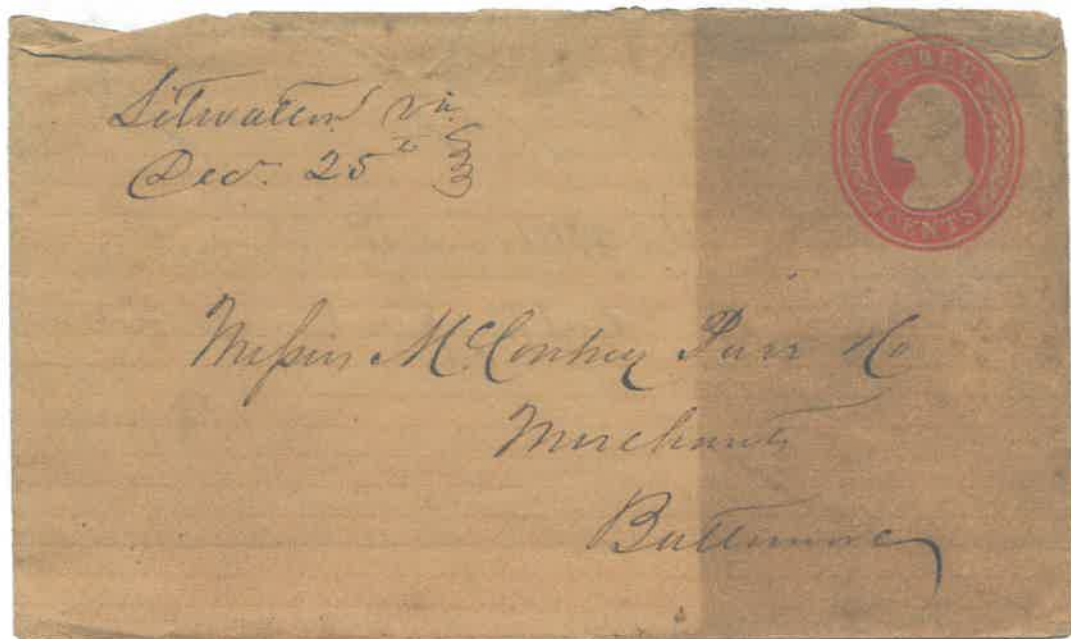 Va.
Dec. 25th
THREE
CENTS
Messrs McConkey Parr & Co
Merchants
Baltimore